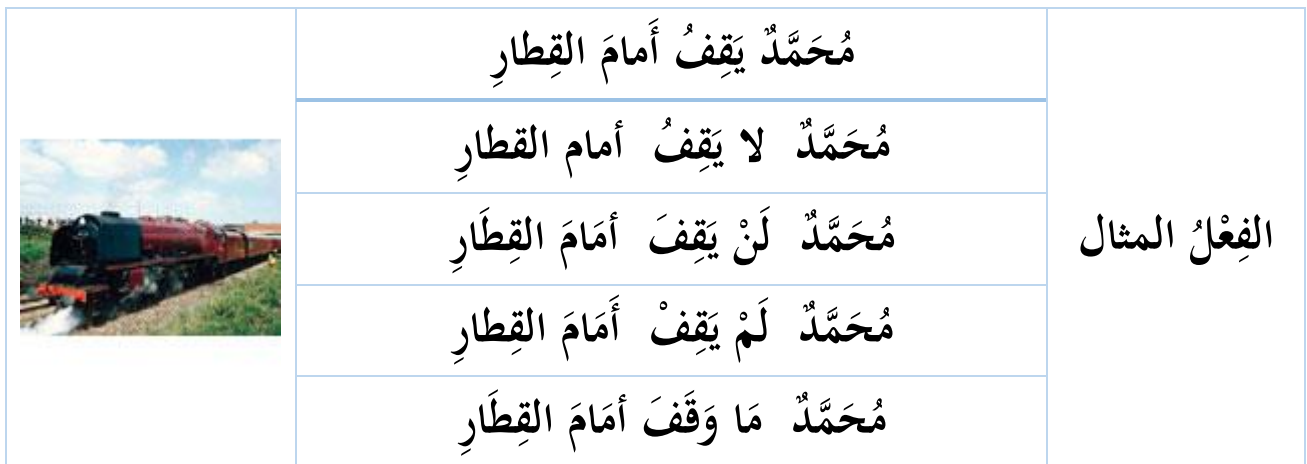 الفِعْلُ المثال
مُحَمَّدٌ يَقِفُ أَمامَ القِطارِ
مُحَمَّدٌ لا يَقِفُ أمام القطارِ
مُحَمَّدٌ لَنْ يَقِفَ أمَامَ القِطَارِ
مُحَمَّدٌ لَمْ يَقِفْ أَمَامَ القِطارِ
مُحَمَّدٌ مَا وَقَفَ أمَامَ القِطَارِ